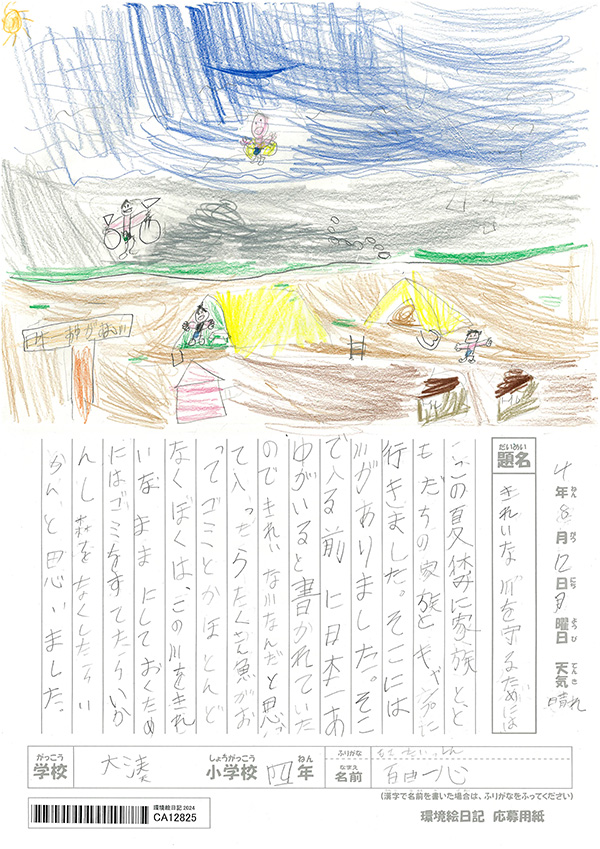 4年8月12日月曜日 天気 晴れ
ねん がつ にち ようび てんき
だいめい
題名
きれいな川を守るためには
この夏休みに家族と、と
もだちの家族とキャンプに
行きました。そこには
川がありました。そこ
で入る前に日本一あ
ゆがいると書かれていた
のできれいな川なんだと思っ
て入ったらたくさん魚がお
ってゴミとかほとんど
なくぼくは、この川をきれ
いなままにしておくため
にはゴミをすてたらいか
んし森をなくしたらい
かんと思いました。
がっこう
学校
大湊
しょうがっこう ねん
小学校 四年
ふりがな
なまえ
名前
一心
(漢字で名前を書いた場合は、ふりがなをふってください)
環境絵日記2024
CA12825
環境絵日記 応募用紙